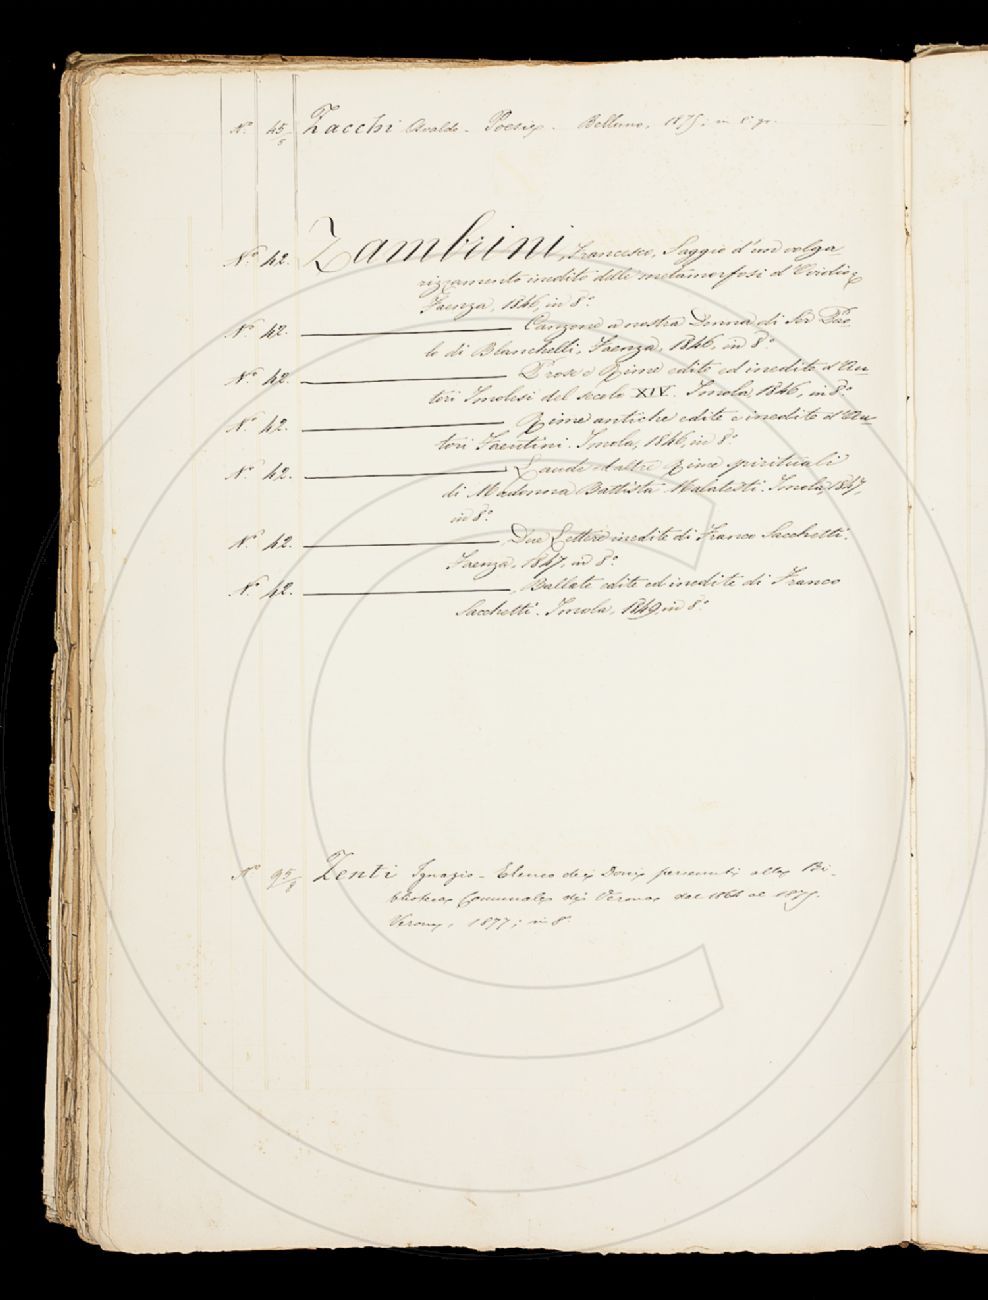 N.° 45/5 Zacchi Osvaldo - Poesie. Belluno, 1875; in 8° gr.
N.° 42. Zambrini, Francesco, Saggio d'un volga-
rizzamento inedito delle metamorfosi d'Ovidio
Faenza, 1846, in 8.°
N.° 42. Canzone a nostra Donna di Ser Pao
lo di Blanchelli, Faenza, 1846, in 8.°
N.° 42. Prose e Rime edite ed inedite d'Au
tori Imolesi del secolo XIV. Imola, 1846, in 8.°
N.° 42. Rime antiche edite e inedite d'Au-
tori Faentini. Imola, 1846, in 8.°
N.° 42. Laude ed altre Rime spirituali
di Madonna Battista Malatesti. Imola, 1847,
in 8.°
N.° 42. Due Lettere inedite di Franco Sacchetti.
Faenza, 1847, in 8.°
N.° 42. Ballate edite ed inedite di Franco
Sacchetti. Imola, 1849, in 8.°
N.° 95/8 Zenti Ignazio - Elenco dei Doni pervenuti alla Bi-
blioteca Comunale di Verona dal 1864 al 1875.
Verona, 1877; in 8°